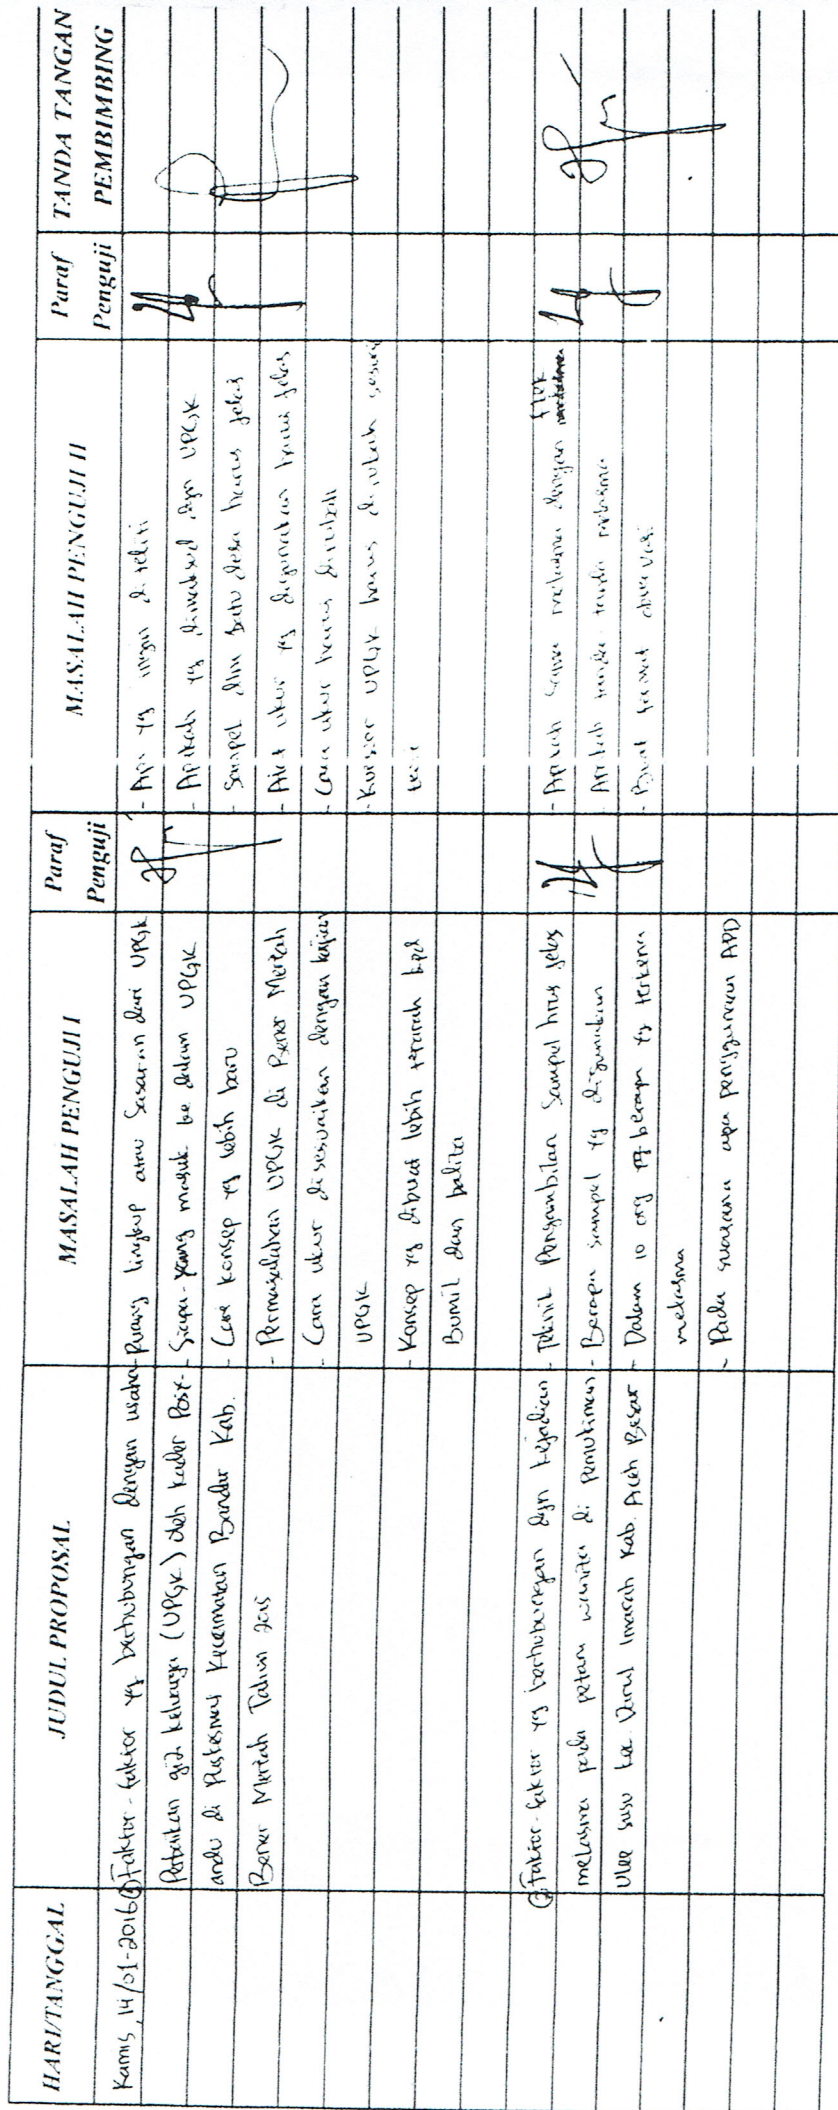 HARI/TANGGAL
JUDUL PROPOSAL
MASALAH PENGUJI I
Paraf Penguji
MASALAH PENGUJI II
Paraf Penguji
TANDA TANGAN PEMBIMBING
Kamis, 14/01-2016
① Faktor-faktor yg berhubungan dengan usaha
Perbaikan gizi keluarga (UPGK) oleh kader Posy-
andu di Puskesmas Kecamatan Bandar Kab.
Bener Meriah Tahun 2015
- Ruang lingkup atau Sasaran dari UPGK
- Siapa yang masuk ke dalam UPGK
- Cari konsep yg lebih baru
- Permasalahan UPGK di Bener Meriah
- Cara ukur disesuaikan dengan kajian
UPGK
- Konsep yg dibuat lebih terarah kpd
Bumil dan balita
- Apa yg ingin diteliti
- Apakah yg dimaksud dgn UPGK
- Sampel dlm satu desa harus jelas
- Alat ukur yg digunakan harus jelas
- Cara ukur harus dirubah
- Kuesioner UPGK harus dirubah sesuai
② Faktor-faktor yg berhubungan dgn kejadian
melasma pada petani wanita di Pemukiman
Ulee susu kec. Darul Imarah Kab. Aceh Besar
- Teknik Pengambilan Sampel hrus jelas
- Berapa sampel yg digunakan
- Dalam 10 org yg berapa yg terkena
melasma
- Pada suasana apa penggunaan APD
- Apakah sama melasma dengan flek
- Apakah tanda-tanda melasma
- Buat format observasi